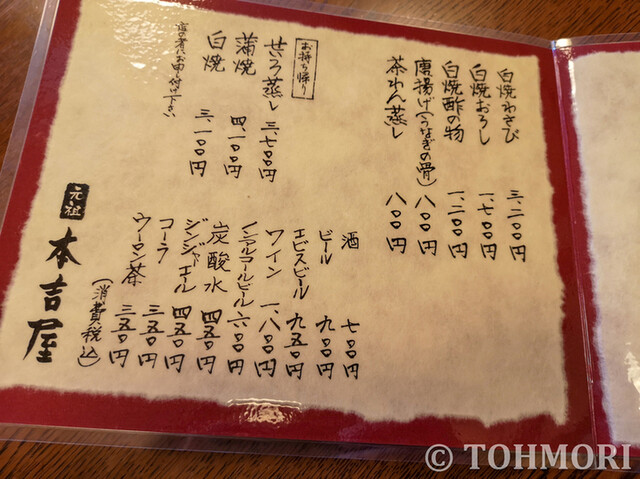 白焼わさび 三、二〇〇円
白焼おろし 一、七〇〇円
白焼酢の物 一、二〇〇円
唐揚げ(うなぎの骨) 八〇〇円
茶わん蒸し 八〇〇円
お持ち帰り
せいろ蒸し 三、七〇〇円
蒲焼 四、一〇〇円
白焼 三、一〇〇円
店の者にお申し付け下さい
酒 七〇〇円
ビール 九〇〇円
エビスビール 九五〇円
ワイン 一、八〇〇円
ノンアルコールビール 六〇〇円
炭酸水 四五〇円
ジンジャーエール 四五〇円
コーラ 三五〇円
ウーロン茶 三五〇円
(消費税込)
元祖
本吉屋
© TOHMORI